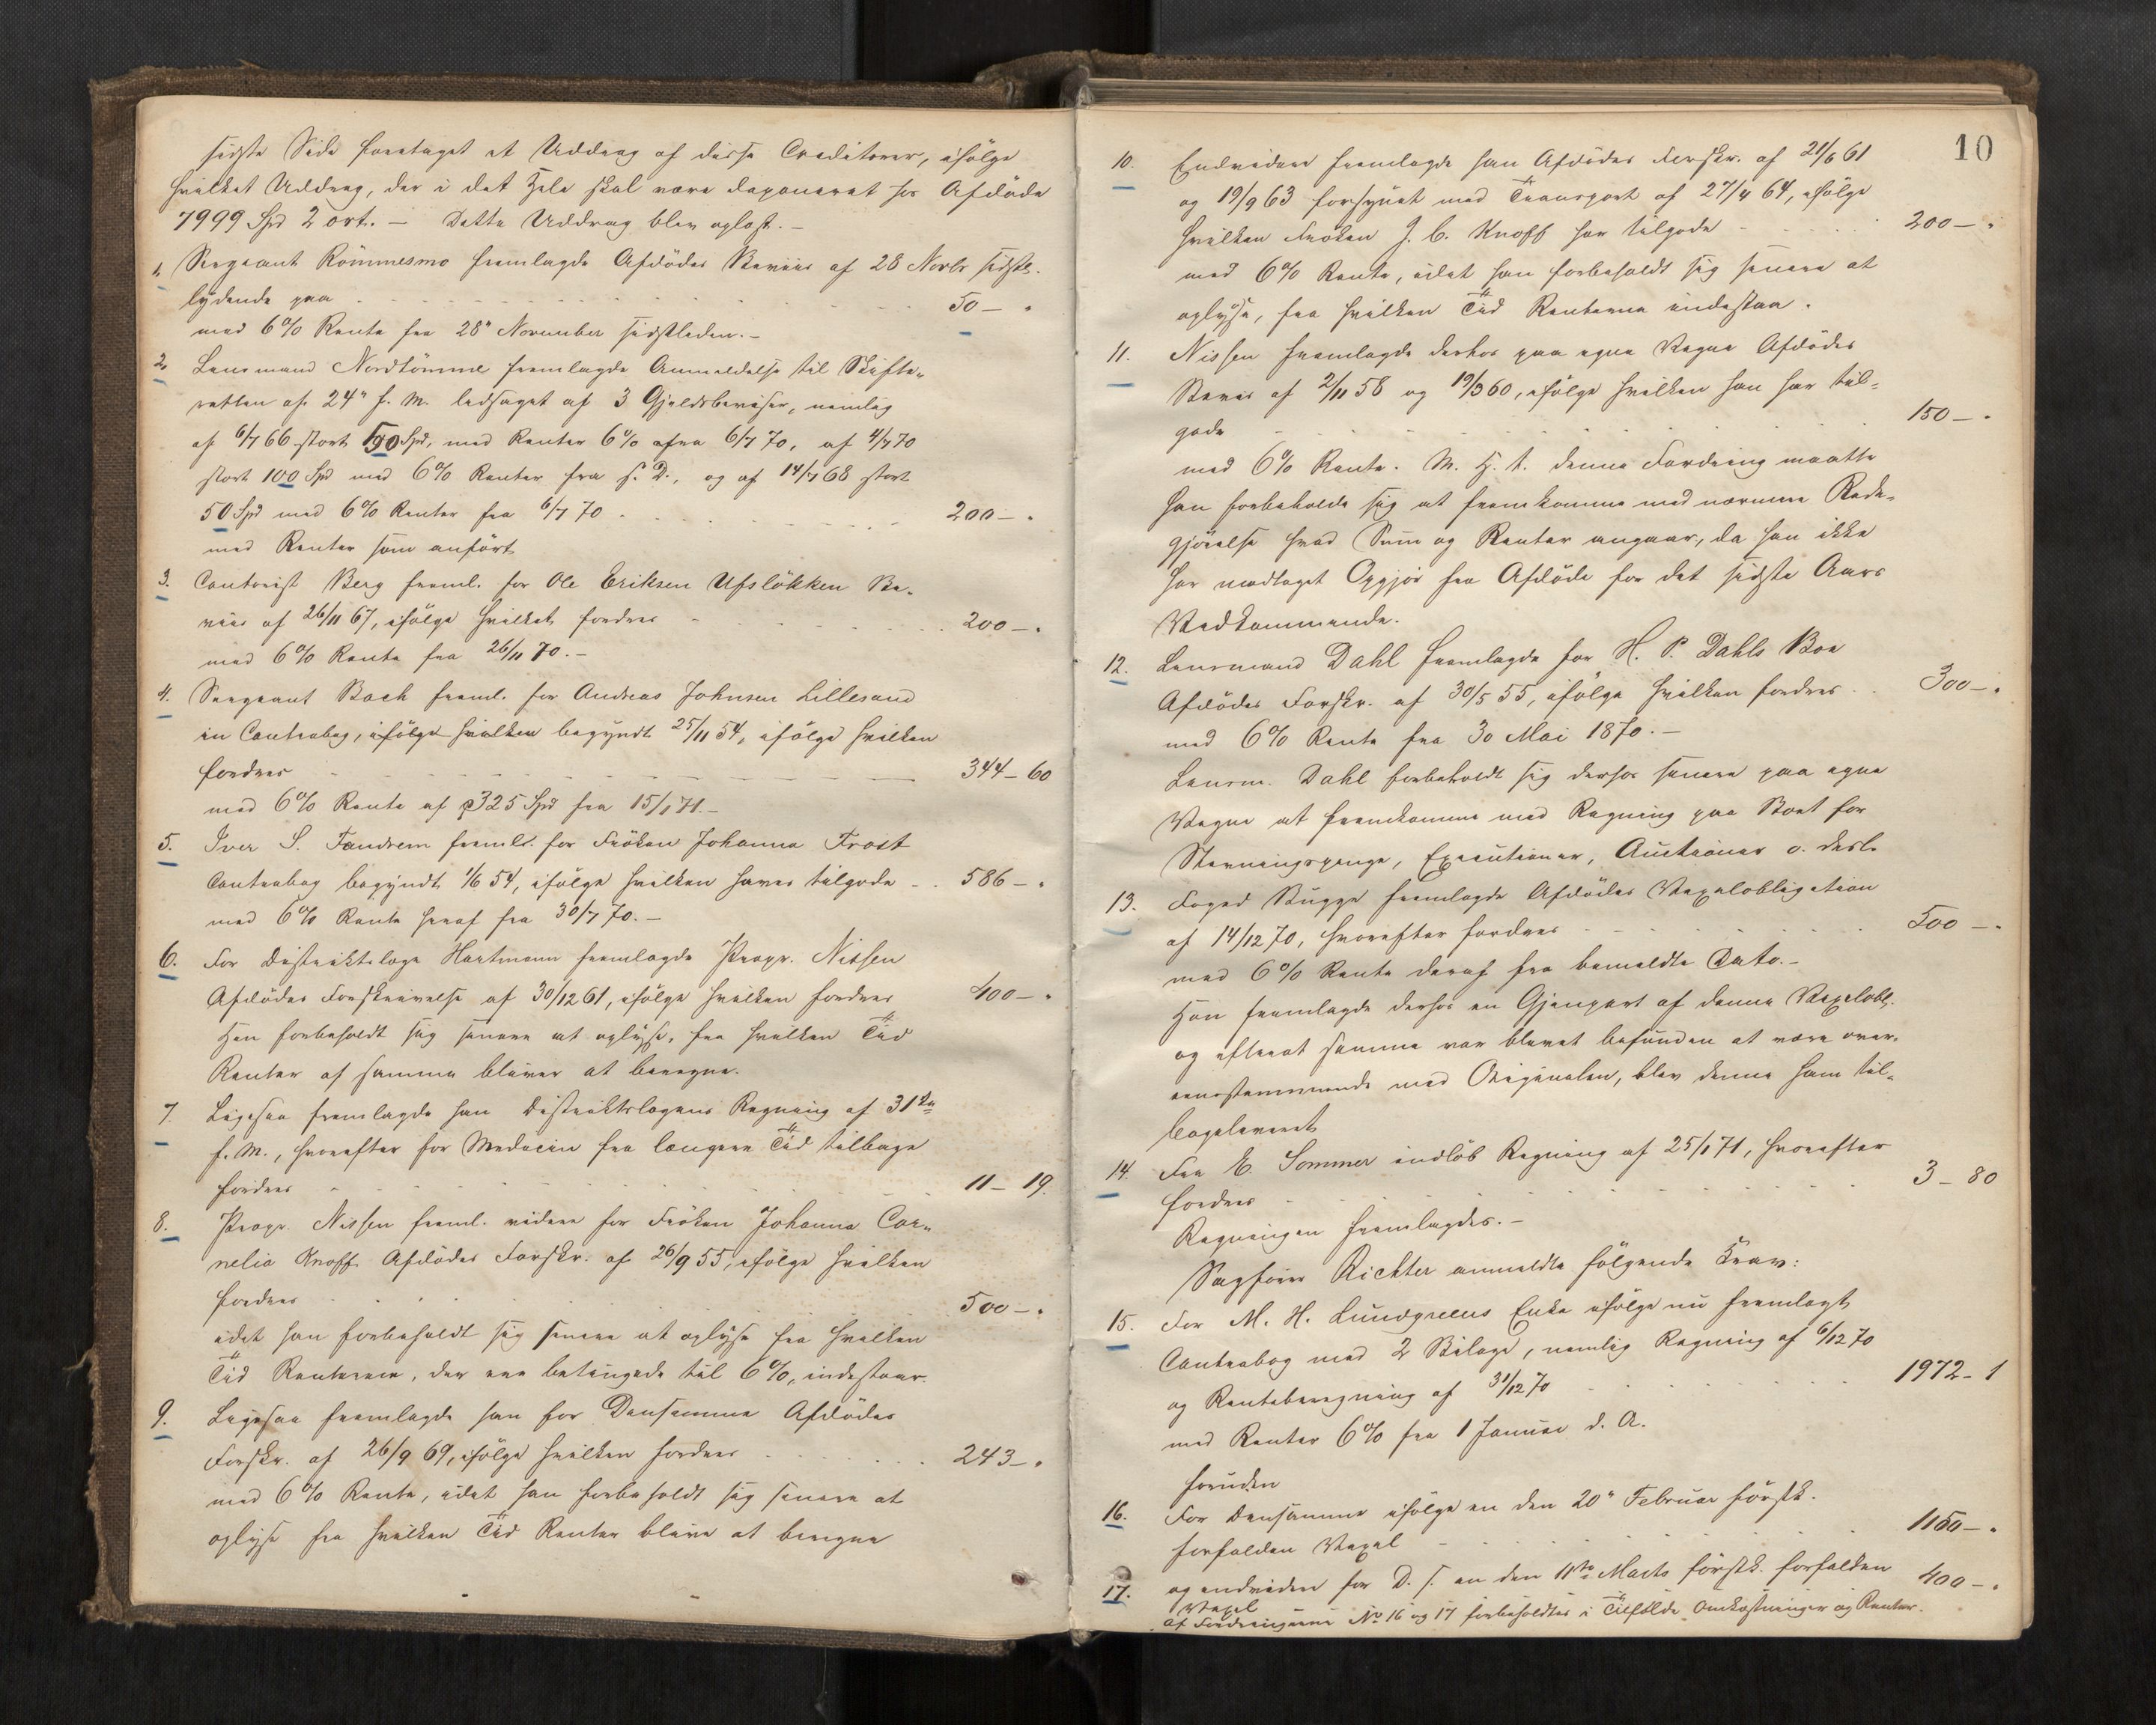 sidste Side foretaget et Uddrag af disse Creditorer, ifölge
hvilket Uddrag, der i det Hele skal være deponeret hos Afdöde
7999 Spd 2 ort. – Dette Uddrag blev oplæst. –
1. Sergeant Römmesmo fremlagde Afdödes Beviis af 28 Novbr sidstl.
lydende paa 50 – "
med 6% Rente fra 28" November sidstleden. –
2. Lensmand Nordtömme fremlagde Anmeldelse til Skifte-
retten af 24" f. M. ledsaget af 3 Gjeldsbeviser, nemlig
af 6/7 66 stort 50 Spd, med Renter 6% fra 6/7 70, af 4/7 70
stort 100 Spd med 6% Renter fra s. D., og af 14/7 68 stort
50 Spd med 6% Renter fra 6/7 70 200 – "
med Renter som anfört.
3. Contorist Berg freml. for Ole Eriksen Ufslökken Be-
viis af 26/11 67, ifölge hvilket fordres 200 – "
med 6% Rente fra 26/11 70. –
4. Sergeant Bach freml. for Andreas Johnsen Lillesand
en Contrabog, ifölge hvilken begyndt 25/11 54, ifölge hvilken
fordres 344 – 60
med 6% Rente af 325 Spd fra 15/1 71. –
5. Iver S. Fandrem freml. for Fröken Johanna Frost
Contrabog begyndt 1/6 54, ifölge hvilken haves tilgode 586 – "
med 6% Rente heraf fra 30/7 70. –
6. For Distriktslæge Hartmann fremlagde Propr. Nissen
Afdödes Forskrivelse af 30/12 61, ifölge hvilken fordres 400 – "
Han forbeholdt sig senere at oplyse, fra hvilken Tid
Renter af samme bliver at beregne.
7. Ligesaa fremlagde han Distriktslægens Regning af 31te
f. M., hvorefter for Medicin fra længere Tid tilbage
fordres 11 – 19.
8. Propr. Nissen freml. videre for Fröken Johanna Cor-
nelia Knoff Afdödes Forskr. af 26/9 55, ifölge hvilken
fordres 500 – "
idet han forbeholdt sig senere at oplyse fra hvilken
Tid Renterne, der ere betingede til 6%, indestaar.
9. Ligesaa fremlagde han for Densamme Afdödes
Forskr. af 26/9 69, ifölge hvilken fordres 243 – "
med 6% Rente, idet han forbeholdt sig senere at
oplyse fra hvilken Tid Renter blive at beregne
10
10. Endvidere fremlagde han Afdödes Forskr. af 21/6 61
og 19/9 63 forsynet med Transport af 27/4 64, ifölge
hvilken Fröken J. C. Knoff har tilgode 200 – "
med 6% Rente, idet han forbeholdt sig senere at
oplyse, fra hvilken Tid Renterne indestaa.
11. Nissen fremlagde derhos paa egne Vegne Afdödes
Bevis af 2/11 58 og 19/3 60, ifölge hvilken han har til-
gode 150 – "
med 6% Rente. M. H. t. denne Fordring maatte
han forbeholde sig at fremkomme med nærmere Rede-
gjörelse hvad Sum og Renter angaar, da han ikke
har modtaget Opgjör fra Afdöde for det sidste Aars
Vedkommende.
12. Lensmand Dahl fremlagde for H. P. Dahls Boe
Afdödes Forskr. af 30/5 55, ifölge hvilken fordres 300 – "
med 6% Rente fra 30 Mai 1870. –
Lensm. Dahl forbeholdt sig derhos senere paa egne
Vegne at fremkomme med Regning paa Boet for
Stevningspenge, Executioner, Auctioner o. desl.
13. Foged Bugge fremlagde Afdödes Vexelobligation
af 14/12 70, hvorefter fordres 500 – "
med 6% Rente deraf fra bemeldte Dato. –
Han fremlagde derhos en Gjenpart af denne Vexelobl.
og efterat samme var blevet befunden at være over-
eensstemmende med Originalen, blev denne ham til-
bageleveret
14. Fra E. Sommer indlöb Regning af 25/1 71, hvorefter
fordres 3 – 80
Regningen fremlagdes. –
Sagförer Richter anmeldte fölgende Krav:
15. For M. H. Lundgreens Enke ifölge nu fremlagt
Contrabog med 2 Bilage, nemlig Regning af 6/12 70
og Renteberegning af 31/12 70 1972 – 1
med Renter 6% fra 1 Januar d. A.
foruden
16. For Densamme ifölge en den 20" Februar förstk.
forfalden Vexel 1150 – "
17. og endvidere for D. s. en den 11te Marts förstk. forfalden 400 – "
Vexel
Af Fordringerne No 16 og 17 forbeholdtes i Tilfælde Omkostninger og Renter.